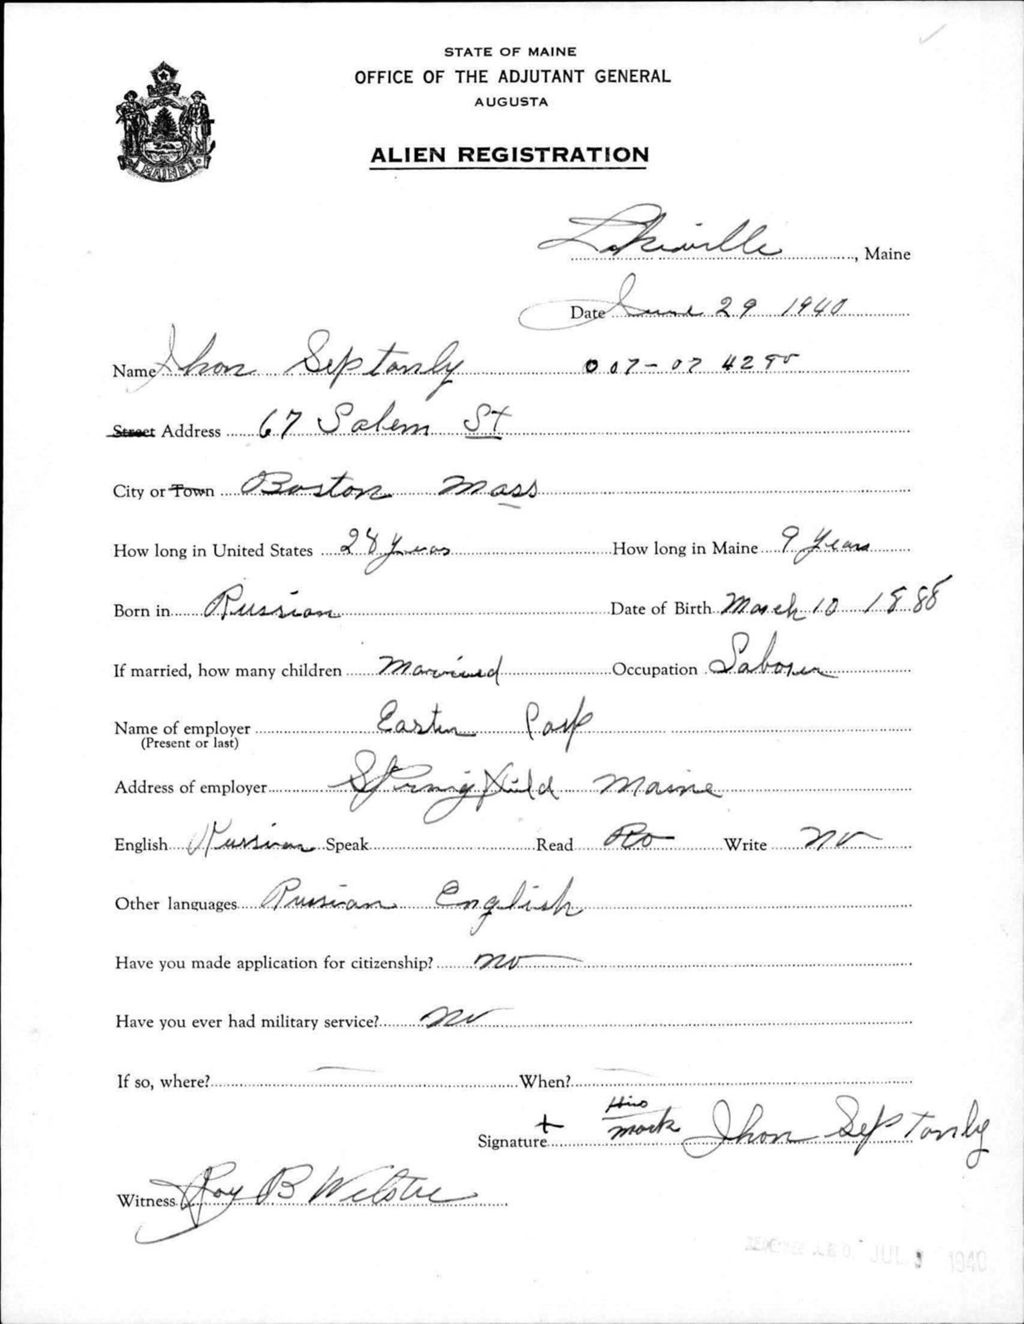 STATE OF MAINE
OFFICE OF THE ADJUTANT GENERAL
AUGUSTA
MAINE
ALIEN REGISTRATION
Lakeville, Maine
Date June 29 1940
Name Jhon Septonly 007-07 42
Street Address 67 Salem St
City or Town Boston Mass
How long in United States 28 Years How long in Maine 9 Years
Born in Russian Date of Birth March 10 1888
If married, how many children Married Occupation Laborer
Name of employer Eastern
(Present or last)
Address of employer Springfield Maine
English Russian Speak Read No Write No
Other languages Russian English
Have you made application for citizenship? no
Have you ever had military service? no
If so, where? When?
His
Signature + mark Jhon Septonly
Witness Roy B
JUL 3 1940